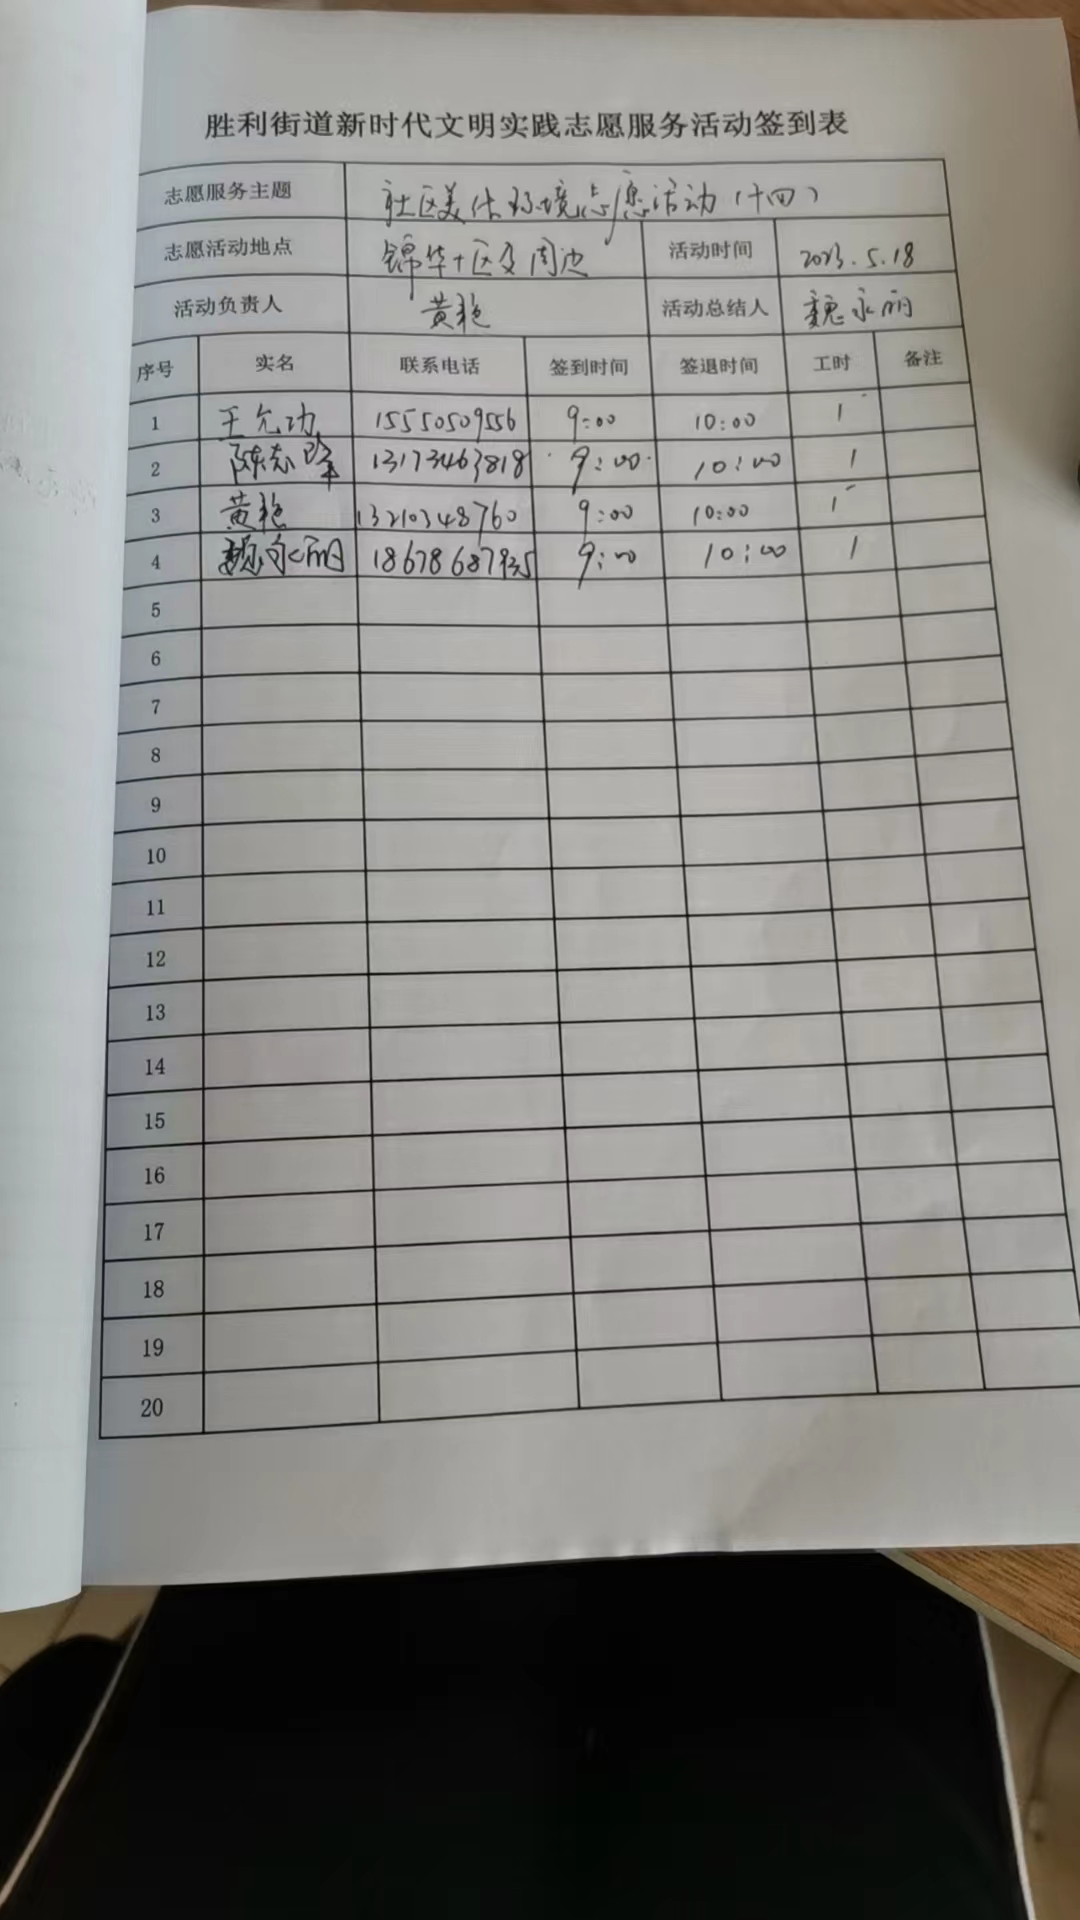 胜利街道新时代文明实践志愿服务活动签到表
志愿服务主题 社区美化环境志愿活动（十四）
志愿活动地点 锦华十区及周边 活动时间 2023.5.18
活动负责人 黄艳 活动总结人 魏永丽
序号 实名 联系电话 签到时间 签退时间 工时 备注
1 王允功 15550509556 9:00 10:00 1
2 陈志峰 13173463818 9:00 10:00 1
3 黄艳 13210348760 9:00 10:00 1
4 魏永丽 18678687935 9:00 10:00 1
5
6
7
8
9
10
11
12
13
14
15
16
17
18
19
20